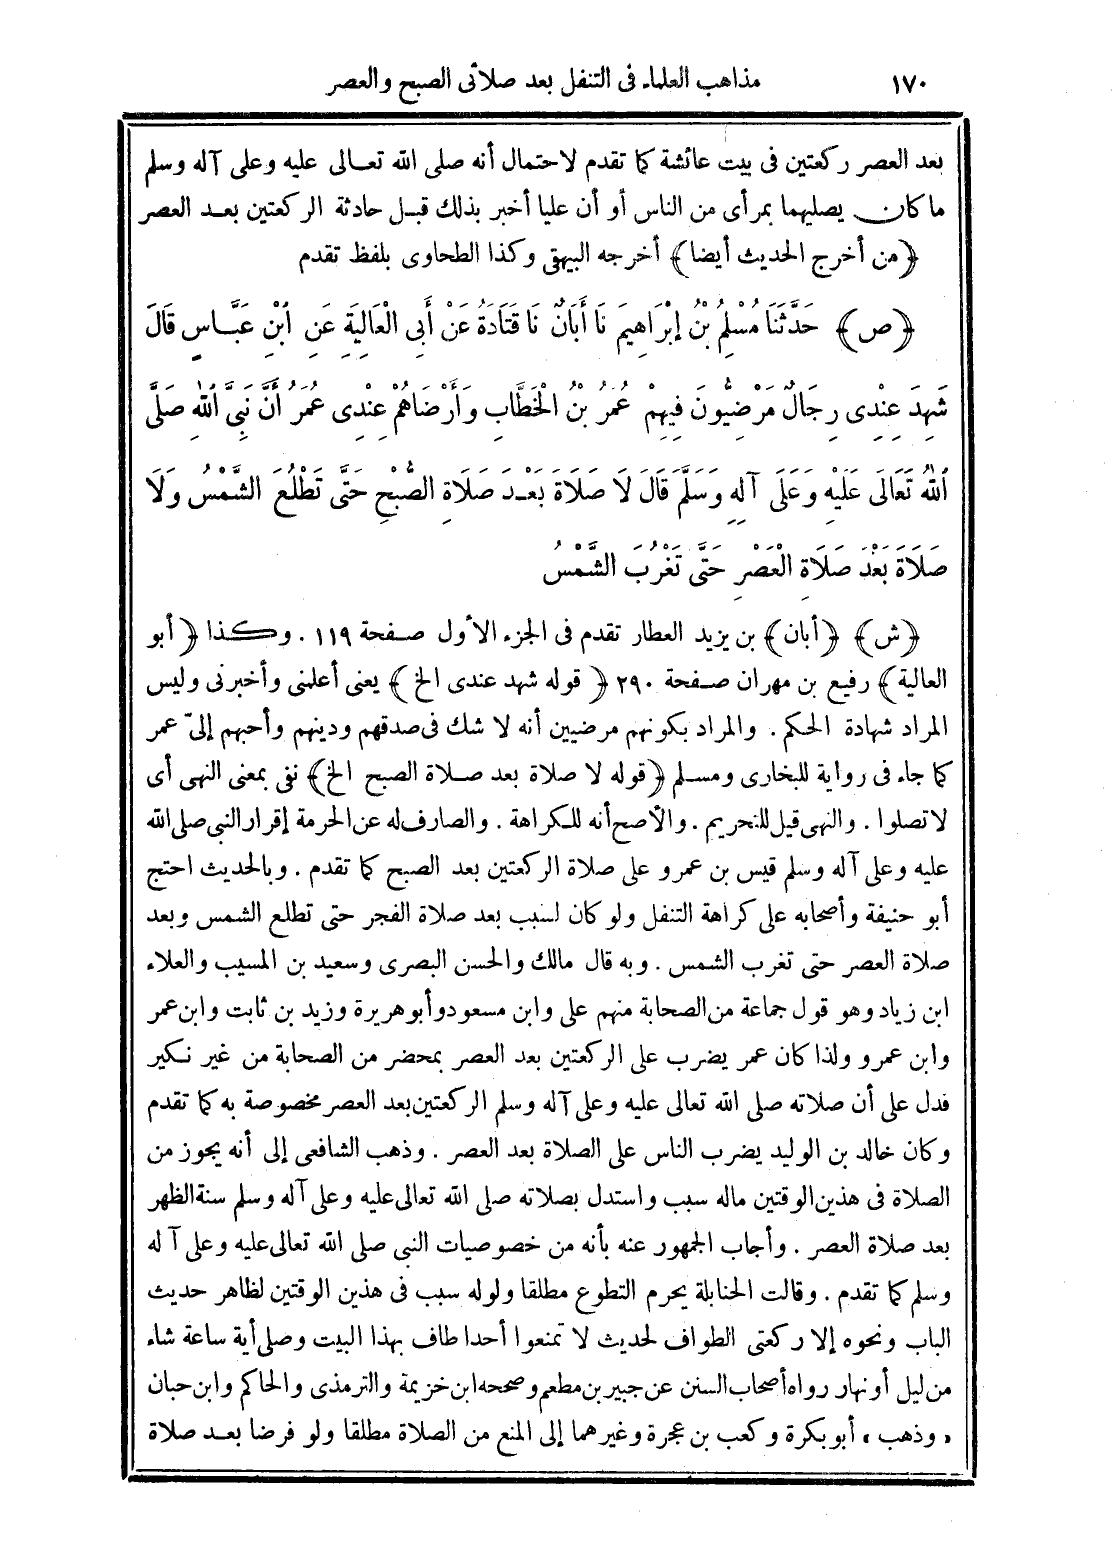 ١٧٠ مذاهب العلماء فى التنفل بعد صلاتى الصبح والعصر
بعد العصر ركعتين فى بيت عائشة كما تقدم لاحتمال أنه صلى الله تعالى عليه وعلى آله وسلم
ما كان يصليهما بمرأى من الناس أو أن عليا أخبر بذلك قبل حادثة الركعتين بعد العصر
﴿من أخرج الحديث أيضا﴾ أخرجه البيهقى وكذا الطحاوى بلفظ تقدم
﴿ص﴾ حَدَّثَنَا مُسْلِمُ بْنُ إِبْرَاهِيمَ نَا أَبَانُ نَا قَتَادَةُ عَنْ أَبِى الْعَالِيَةِ عَنِ ابْنِ عَبَّاسٍ قَالَ
شَهِدَ عِنْدِى رِجَالٌ مَرْضِيُّونَ فِيهِمْ عُمَرُ بْنُ الْخَطَّابِ وَأَرْضَاهُمْ عِنْدِى عُمَرُ أَنَّ نَبِىَّ اللهِ صَلَّى
اللهُ تَعَالَى عَلَيْهِ وَعَلَى آلِهِ وَسَلَّمَ قَالَ لَا صَلَاةَ بَعْدَ صَلَاةِ الصُّبْحِ حَتَّى تَطْلُعَ الشَّمْسُ وَلَا
صَلَاةَ بَعْدَ صَلَاةِ الْعَصْرِ حَتَّى تَغْرُبَ الشَّمْسُ
﴿ش﴾ ﴿أبان﴾ بن يزيد العطار تقدم فى الجزء الأول صفحة ١١٩ . وكذا ﴿أبو
العالية﴾ رفيع بن مهران صفحة ٢٩٠ ﴿قوله شهد عندى الخ﴾ يعنى أعلمنى وأخبرنى وليس
المراد شهادة الحكم . والمراد بكونهم مرضيين أنه لا شك فى صدقهم ودينهم وأحبهم إلىّ عمر
كما جاء فى رواية للبخارى ومسلم ﴿قوله لا صلاة بعد صلاة الصبح الخ﴾ نفى بمعنى النهى أى
لا تصلوا . والنهى قيل للتحريم . والأصح أنه للكراهة . والصارف له عن الحرمة إقرار النبى صلى الله
عليه وعلى آله وسلم قيس بن عمرو على صلاة الركعتين بعد الصبح كما تقدم . وبالحديث احتج
أبو حنيفة وأصحابه على كراهة التنفل ولو كان لسبب بعد صلاة الفجر حتى تطلع الشمس وبعد
صلاة العصر حتى تغرب الشمس . وبه قال مالك والحسن البصرى وسعيد بن المسيب والعلاء
ابن زياد وهو قول جماعة من الصحابة منهم على وابن مسعود وأبو هريرة وزيد بن ثابت وابن عمر
وابن عمرو ولذا كان عمر يضرب على الركعتين بعد العصر بمحضر من الصحابة من غير نكير
فدل على أن صلاته صلى الله تعالى عليه وعلى آله وسلم الركعتين بعد العصر مخصوصة به كما تقدم
وكان خالد بن الوليد يضرب الناس على الصلاة بعد العصر . وذهب الشافعى إلى أنه يجوز من
الصلاة فى هذين الوقتين ماله سبب واستدل بصلاته صلى الله تعالى عليه وعلى آله وسلم سنة الظهر
بعد صلاة العصر . وأجاب الجمهور عنه بأنه من خصوصيات النبى صلى الله تعالى عليه وعلى آله
وسلم كما تقدم . وقالت الحنابلة يحرم التطوع مطلقا ولو له سبب فى هذين الوقتين لظاهر حديث
الباب ونحوه إلا ركعتى الطواف لحديث لا تمنعوا أحدا طاف بهذا البيت وصلى أية ساعة شاء
من ليل أو نهار رواه أصحاب السنن عن جبير بن مطعم وصححه ابن خزيمة والترمذى والحاكم وابن حبان
«وذهب» أبو بكرة وكعب بن عجرة وغيرهما إلى المنع من الصلاة مطلقا ولو فرضا بعد صلاة